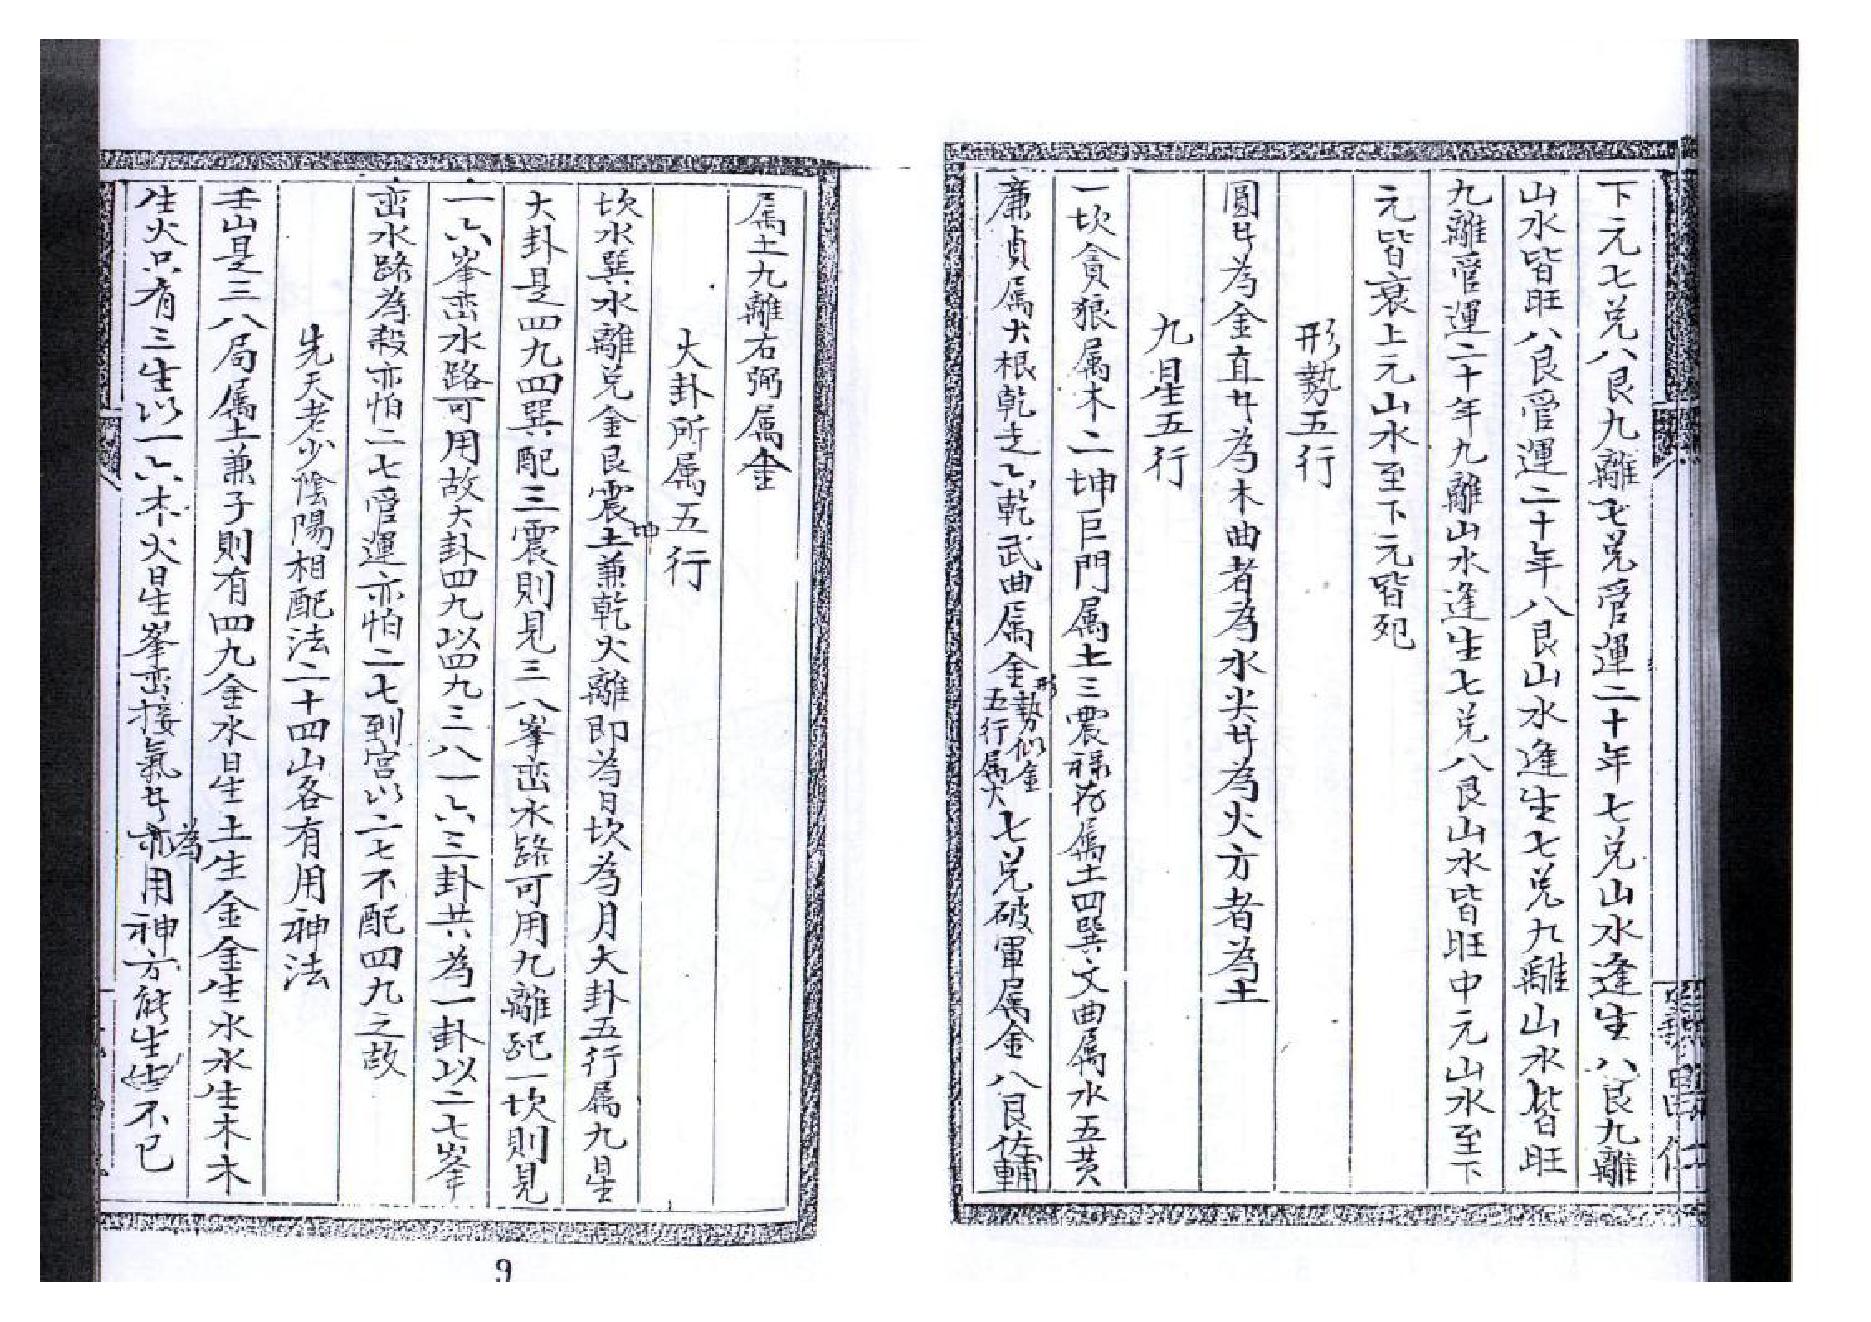 下元七兌八艮九離七兌管運二十年七兌山水逢生八艮九離
山水皆旺八艮管運二十年八艮山水逢生七兌九離山水皆旺
九離管運二十年九離山水逢生七兌八艮山水皆旺中元山水至下
元皆衰上元山水至下元皆死
形勢五行
圓廿為金直廿為木曲者為水尖廿為火方者為土
九星五行
一坎貪狼属木二坤巨門属土三震祿存属土四巽文曲属水五黃
廉貞属火根乾走六乾武曲属金形勢似金五行属火七兌破軍属金八艮佐輔
属土九離右弼属金
大卦所属五行
坎水巽水離兌金艮震坤土兼乾火離即為日坎為月大卦五行属九星
大卦是四九四巽配三震則見三八峯巒水路可用九離配一坎則見
一六峯巒水路可用故大卦四九以四九三八一六三卦共為一卦以二七峯
巒水路為殺亦怕二七管運亦怕二七到宮以二七不配四九之故
先天老少陰陽相配法二十四山各有用神法
壬山是三八局属土兼子則有四九金水日生土生金金生水水生木木
生火只有三生以一六木火星生峯巒接氣廿為用神方能生生不已
9